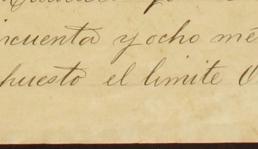 ncuenta y ocho mé
puesto el limite O